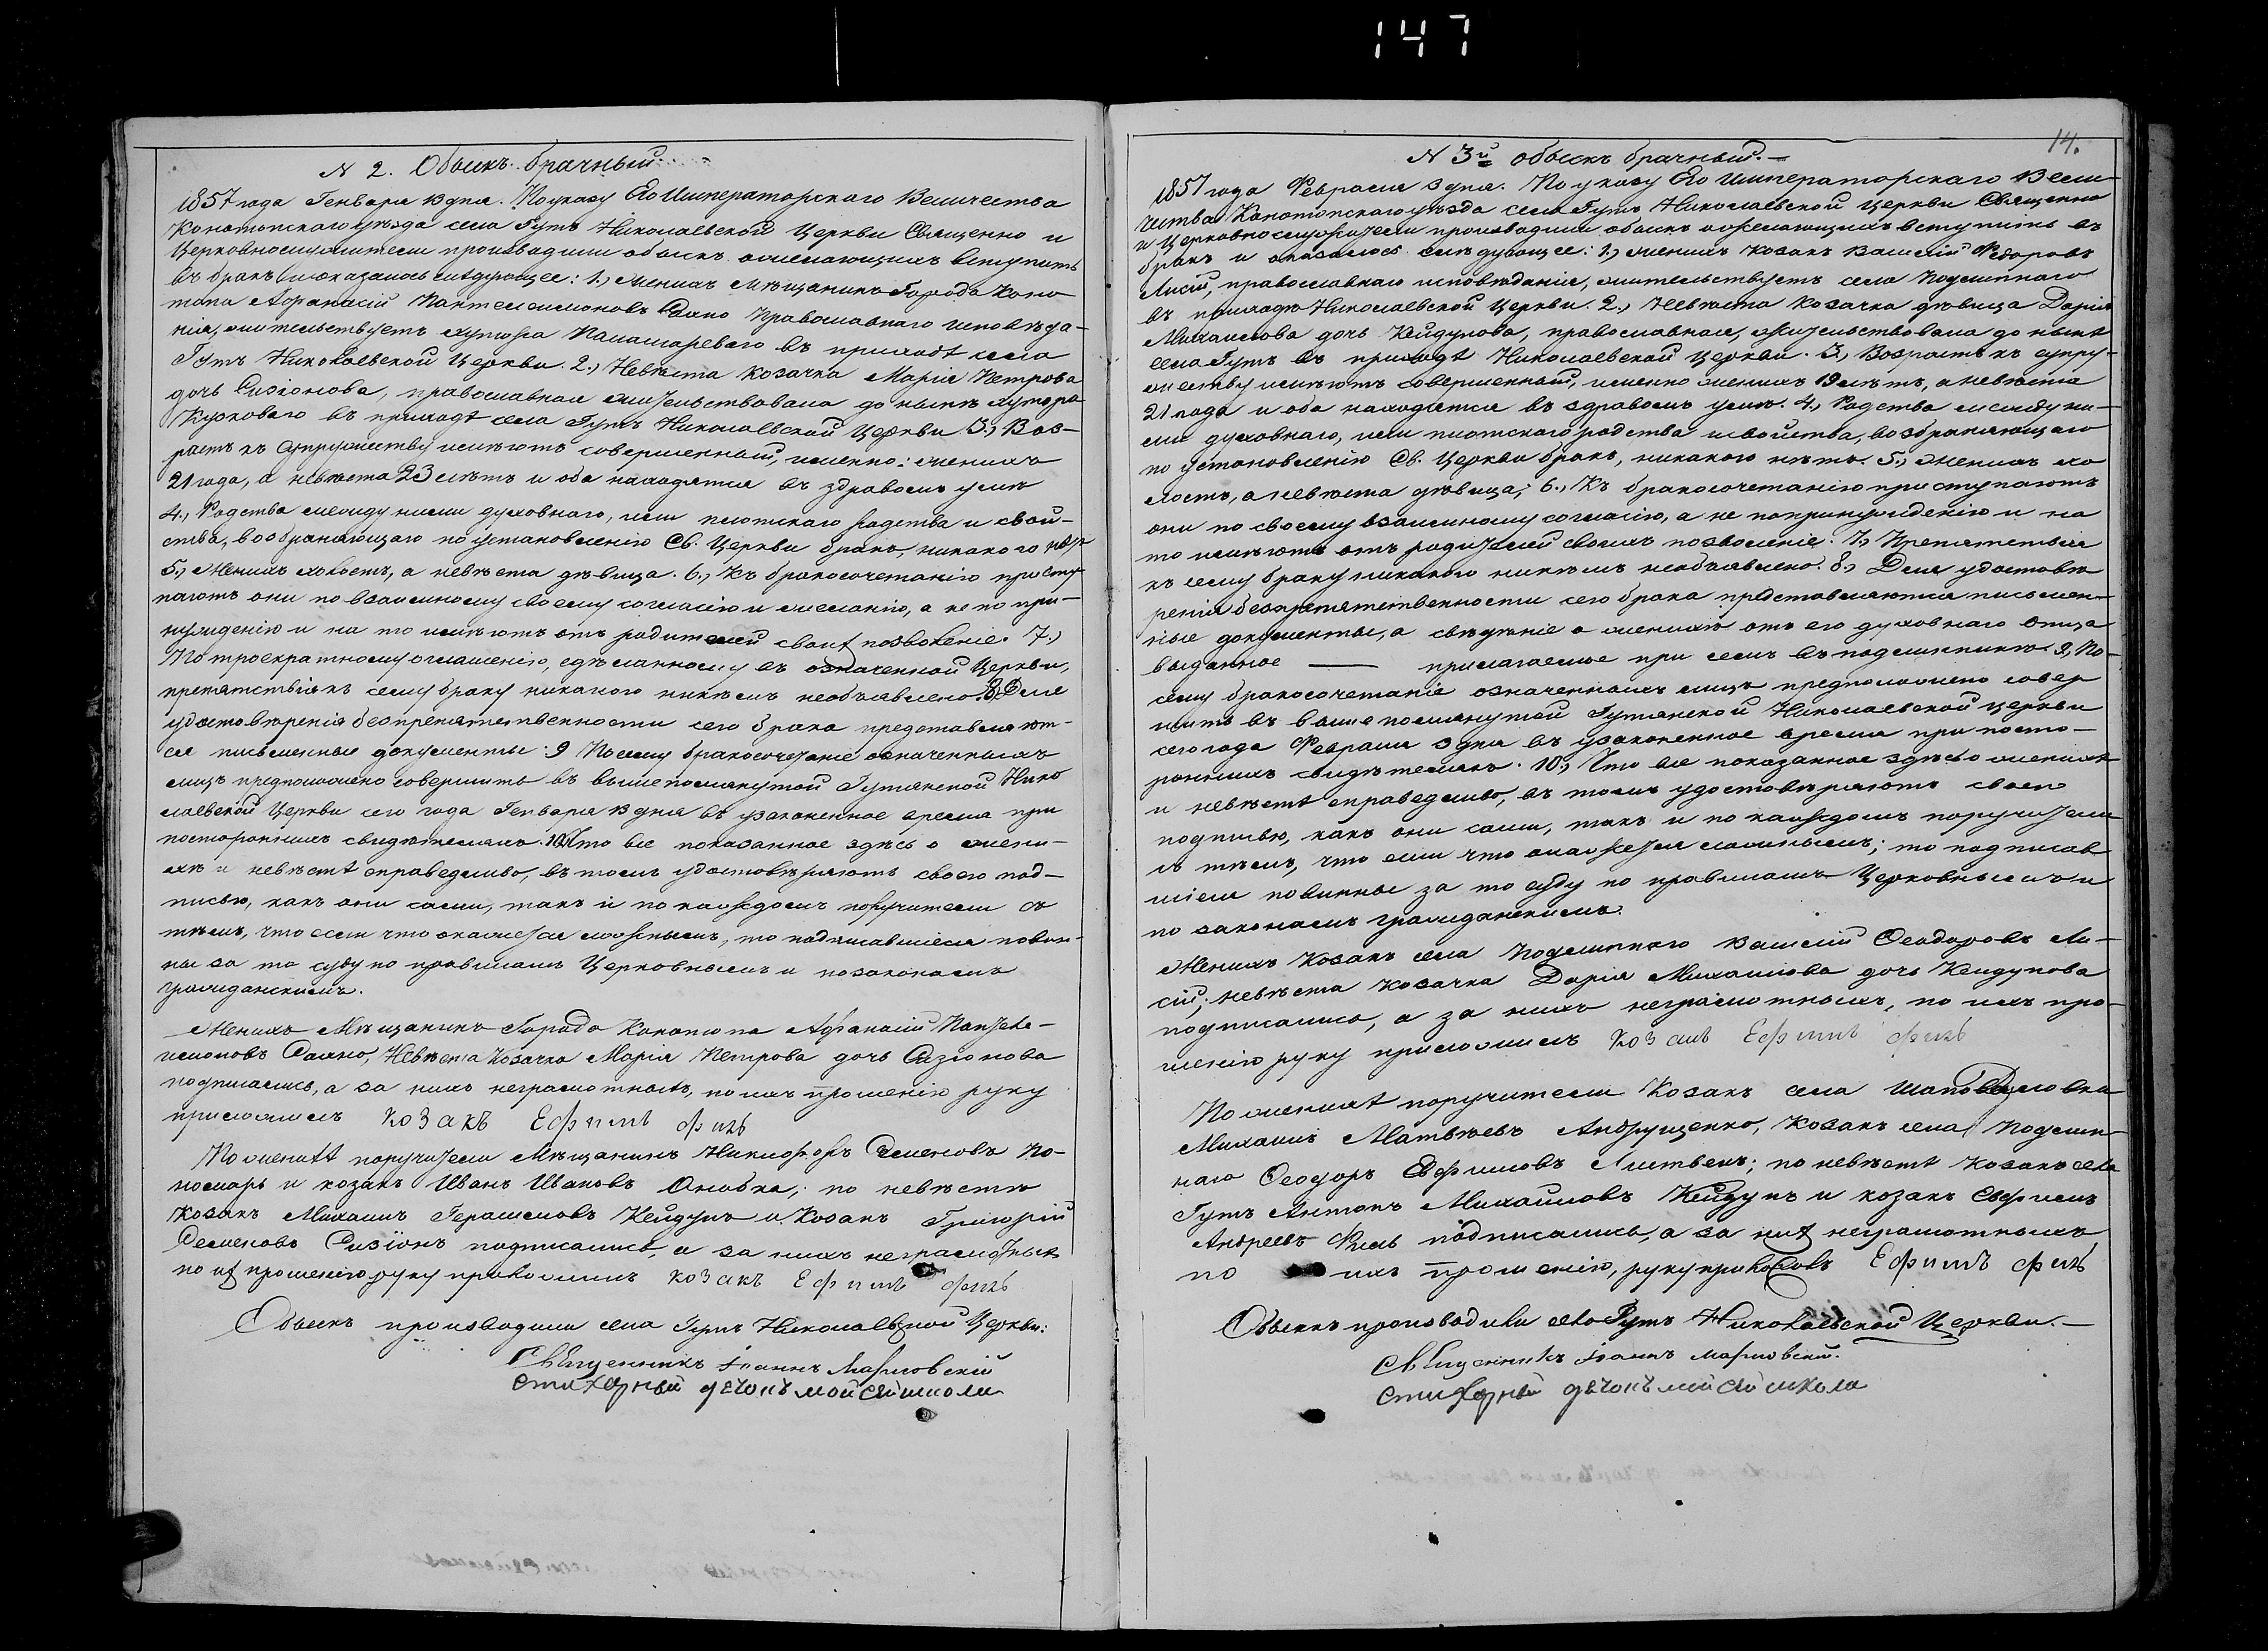 147
N 2. Обыскъ брачный.
1857 года Генваря 13 дня. По указу Его Императорского Величества
Конотопскаго уѣзда села Гутъ Николаевской Церкви Священно и
Церковнослужители производили обыскъ о желающихъ вступить
въ бракъ и оказалось слѣдующее: 1., Женихъ мѣщанинъ Города Коно-
топа Афанасій Пантелеимоновъ православнаго исповѣда-
нія, жительствуетъ хутора въ приходѣ села
Гутъ Николаевской Церкви. 2., Невѣста козачка Марія Петрова
дочь Сизіонова, православная жительствовала до нынѣ хутора
въ приходѣ села Гутъ Николаевской Церкви 3., Воз-
растъ къ супружеству имѣютъ совершенный, именно: женихъ
21 года, а невѣста 23 лѣтъ и оба находятся въ здравомъ умѣ
4., Родства между ними духовнаго, или плотскаго родства и свой-
ства, возбраняющаго по установленію Св. Церкви бракъ, никакого нѣтъ
5., Женихъ холостъ, а невѣста дѣвица. 6., Къ бракосочетанію присту
паютъ они по взаимному своему согласію и желанію, а не по при-
нужденію и на то имѣютъ отъ родителей своихъ позволеніе. 7.,
По троекратному оглашенію, сдѣланному въ означенной Церкви,
препятствія къ сему браку никакого никѣмъ необъявлено. 8., Для
удостовѣренія безпрепятственности сего брака представляют-
ся письменные документы. 9 Посему бракосочетаніе означенныхъ
лицъ предположено совершить въ вышепомянутой Гутянской Нико
лаевской Церкви сего года Генваря 13 дня въ узаконенное время при
постороннихъ свидѣтеляхъ. 10., Что все показанное здѣсь о жени-
хѣ и невѣстѣ справедливо, въ томъ удостовѣряютъ своею под-
писью, какъ они сами, такъ и по каждомъ поручители съ
тѣмъ, что если что окажется ложнымъ, то подписавшіеся повин-
ны за то суду по правиламъ Церковнымъ и по законамъ
гражданскимъ.
Женихъ Мѣщанинъ Города Конотопа Афанасій Пантеле-
имоновъ Невѣста Козачка Марія Петрова дочь Сизіонова
подписались, а за нихъ неграмотныхъ, по ихъ прошенію руку
приложилъ козакъ Ефимъ Филь
По женихѣ поручители Мѣщанинъ Никифоръ Семеновъ По-
номарь и козакъ Иванъ Ивановъ по невѣстѣ
Козакъ Михаилъ Герасимовъ Кейдунъ и Козакъ Григорій
Семеновъ Сизіонъ подписались, а за нихъ неграмотныхъ
по их прошенію руку приложилъ козакъ Ефимъ Филь
Обыскъ производили села Гутъ Николаевской Церкви:
Священникъ Іоаннъ
Стихарный дячокъ
14.
N 3й обыскъ брачный.—
1857 года Февраля 3 дня. По указу Его Императорскаго Вели-
чества Конотопскаго уѣзда села Гутъ Николаевской Церкви Священно
и Церковнослужители производили обыскъ о желающихъ вступить въ
бракъ и оказалось слѣдующее: 1., женихъ козакъ Василій Федоровъ
Лисій, православнаго исповѣданія, жительствуетъ села Подлипнаго
въ приходѣ Николаевской Церкви. 2., Невѣста козачка дѣвица Дарія
Михаилова дочь Кейдунова, православная, жительствовала до нынѣ
села Гутъ въ приходѣ Николаевской Церкви. 3., Возрастъ къ супру-
жеству имѣютъ совершенный, именно женихъ 19 лѣтъ, а невѣста
21 года и оба находятся въ здравомъ умѣ. 4., Родства между ни-
ми духовнаго, или плотскаго родства и свойства, возбраняющаго
по установленію Св. Церкви бракъ, никакого нѣтъ. 5., Женихъ хо
лостъ, а невѣста дѣвица; 6., Къ бракосочетанію приступаютъ
они по своему взаимному согласію, а не по принужденію и на
то имѣютъ отъ родителей своихъ позволеніе. 7., Препятствія
къ сему браку никакого никѣмъ необъявлено. 8., Для удостовѣ
ренія безпрепятственности сего брака представляются письмен-
ные документы, а свѣдѣніе о женихѣ отъ его духовнаго отца
выданное —— прилагаемое при семъ въ подлинникѣ 9., По-
сему бракосочетаніе означенныхъ лицъ предположено совер
шить въ вышепомянутой Гутянской Николаевской церкви
сего года Февраля 3 дня въ узаконенное время при посто-
роннихъ свидѣтеляхъ. 10., Что все показанное здѣсь о женихѣ
и невѣстѣ справедливо, въ томъ удостовѣряютъ своею
подписью, какъ они сами, такъ и по каждомъ поручители
съ тѣмъ, что если что окажется ложнымъ; то подписав
шіеся повинны за то суду по правиламъ Церковнымъ и
по законамъ гражданскимъ.
Женихъ Козакъ села Подлипнаго Василій Феодоровъ Ли-
сій; невѣста козачка Дарія Михаилова дочь Кейдунова
подписались, а за нихъ неграмотныхъ, по ихъ про-
шенію руку приложилъ козакъ Ефимъ Филь
По женихѣ поручители Козакъ села Шаповаловки
Михаилъ Матвѣевъ Андрущенко, Козакъ села Подлип-
наго Феодоръ Евфимовъ по невѣстѣ козакъ села
Гутъ Антонъ Михайловъ Кейдунъ и козакъ Евфимъ
Андреевъ Филь подписались, а за них неграмотныхъ
по ихъ прошенію, руку приложилъ Ефимъ Филь
Обыскъ производили села Гутъ Николаевской Церкви.—
Священникъ Іоаннъ
Стихарный дячокъ